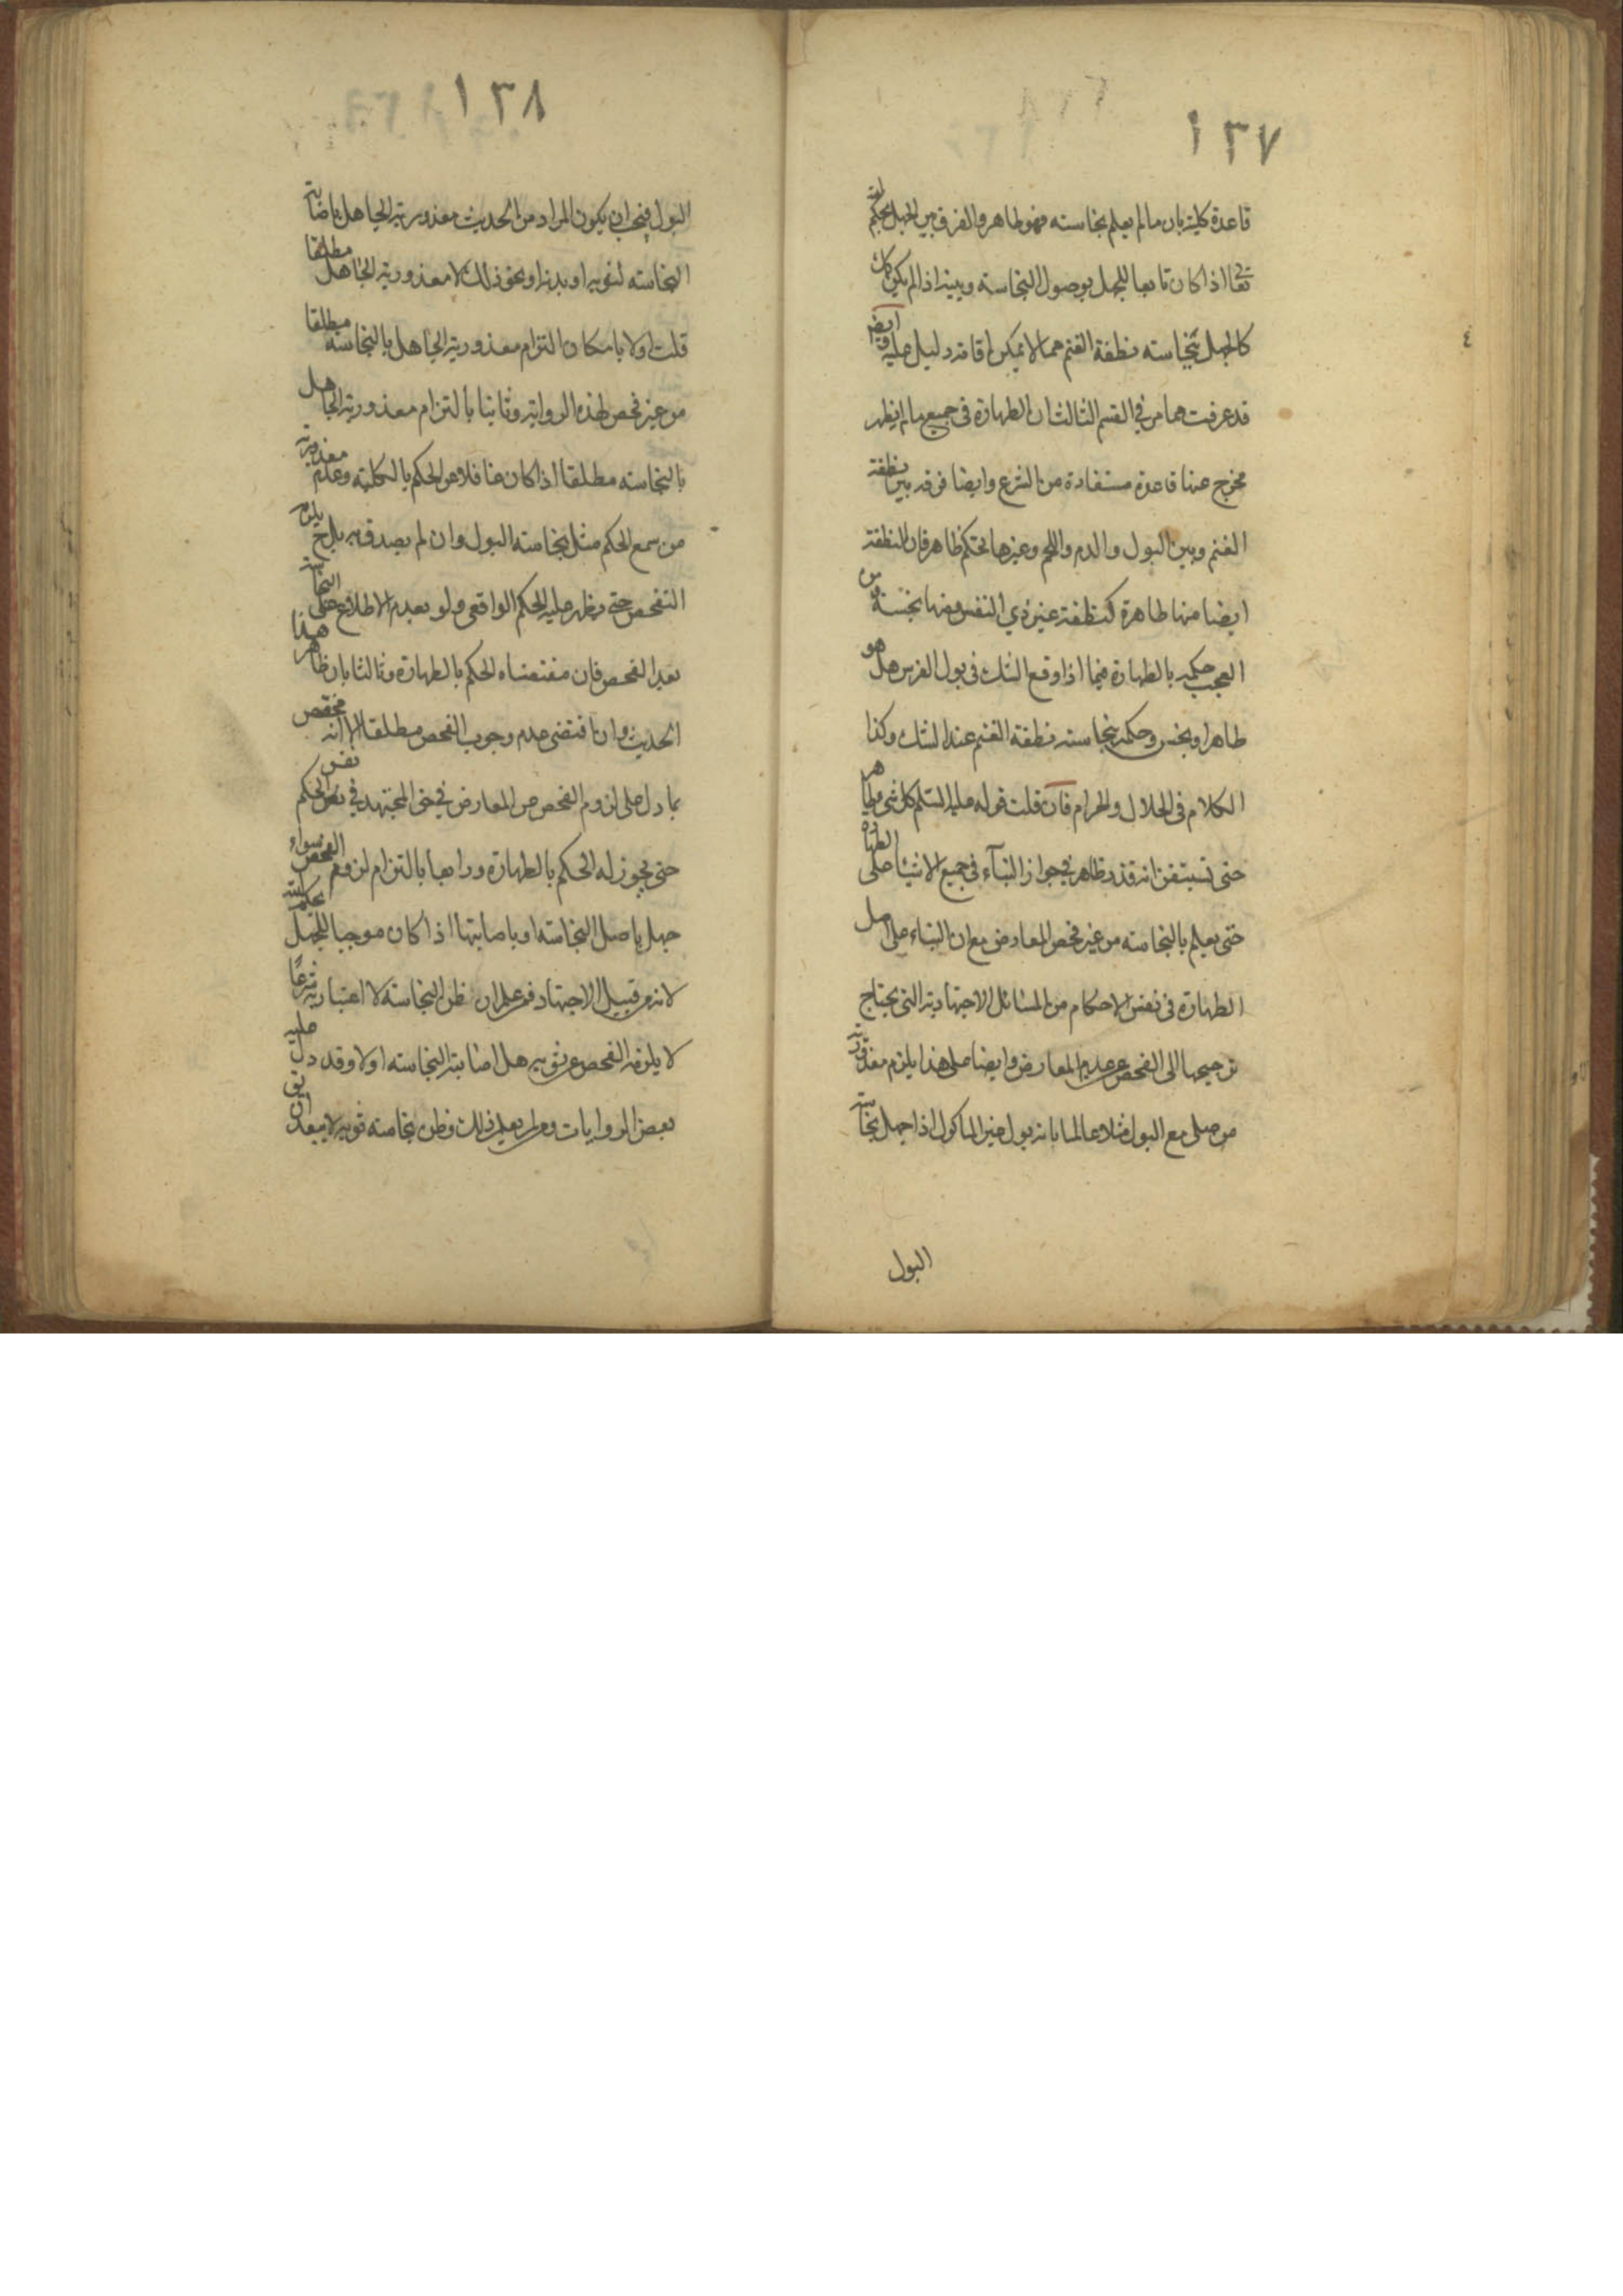 ١٣٧
قاعدة كلية بان ما لم يعلم نجاسته فهو طاهر والفرق بين الجهل بحكم الله
تعالى اذا كان تابعا للجهل بوصول النجاسة وبينه اذا لم يكن كك
كالجهل بنجاسته نطفة الغنم مما لا يمكن اقامة دليل عليه وايضا
قد عرفت مما مر في القسم الثالث ان الطهارة في جميع ما لم يظهر
مخرج عنها قاعدة مستفادة من الشرع وايضا فرقه بين نطفة
الغنم وبين البول والدم واللحم وغيرها تحكم ظاهر فان النطفة
ايضا منها طاهرة كنطفة غير ذي النفس ومنها نجسة ومن
العجب حكمه بالطهارة فيما اذا وقع الشك في بول الفرس هل هو
طاهر او نجس وحكمه بنجاسته نطفة الغنم عند الشك وكذا
الكلام في الحلال والحرام فان قلت قوله عليه السلم كل شيء طاهر
حتى تستيقن انه قذر ظاهر في جواز البناء في جميع الاشياء على الطهارة
حتى يعلم بالنجاسته من غير فحص المعارض مع ان البناء على اصل
الطهارة في نفس الاحكام من المسائل الاجتهادية التي يحتاج
ترجيحها الى الفحص عن عدم المعارض وايضا على هذا يلزم معذورية
من صلى مع البول مثلا عالما بانه بول غير الماكول اذا جهل نجاسته
البول
١٣٨
البول فيجب ان يكون المراد من الحديث معذورية الجاهل باصابة
النجاسته لثوبه او بدنه او نحو ذلك لا معذورية الجاهل مطلقا
قلت اولا بامكان التزام معذورية الجاهل بالنجاسته مطلقا
من غير فحص لهذه الرواية وثانيا بالتزام معذورية الجاهل
بالنجاسته مطلقا اذا كان غافلا عن الحكم بالكلية وعدم معذورية
من سمع الحكم مثل نجاسته البول وان لم يصدق به بل ح يلزمه
التفحص حتى يظهر عليه الحكم الواقعي ولو بعدم الاطلاع على النجاسته
بعد الفحص فان مقتضاه الحكم بالطهارة وثالثا بان ظاهر هذا
الحديث وان اقتضى عدم وجوب الفحص مطلقا الا انه مخصص
بما دل على لزوم الفحص عن المعارض في حق المجتهد في نفس الحكم
حتى يجوز له الحكم بالطهارة ورابعا بالتزام لزوم الفحص سواء
جهل باصل النجاسته او باصابتها اذا كان موجبا للجهل بحكم الله
لانه من قبيل الاجتهاد فمن علم ان ظن النجاسته لا اعتبار به شرعًا
لا يلزمه الفحص عن ثوبه هل اصابته النجاسته اولا وقد دل عليه
بعض الروايات ومن لم يعلم ذلك وظن نجاسته ثوبه لا يبعد ان يق